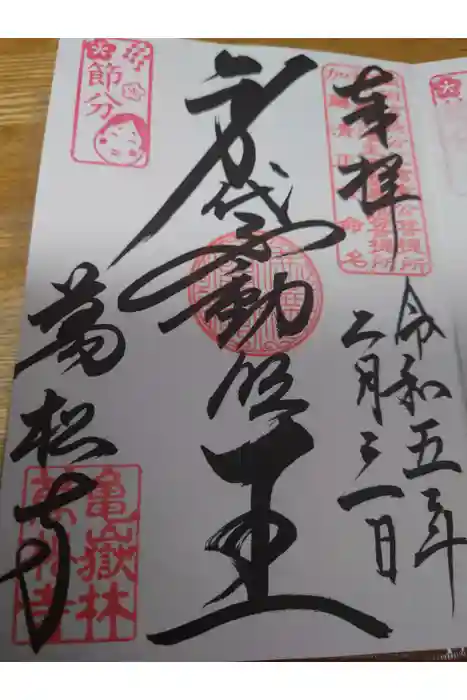 奉拝
令和五年
二月三日
身代不動明王
萬松寺
節分
亀嶽林
萬松寺